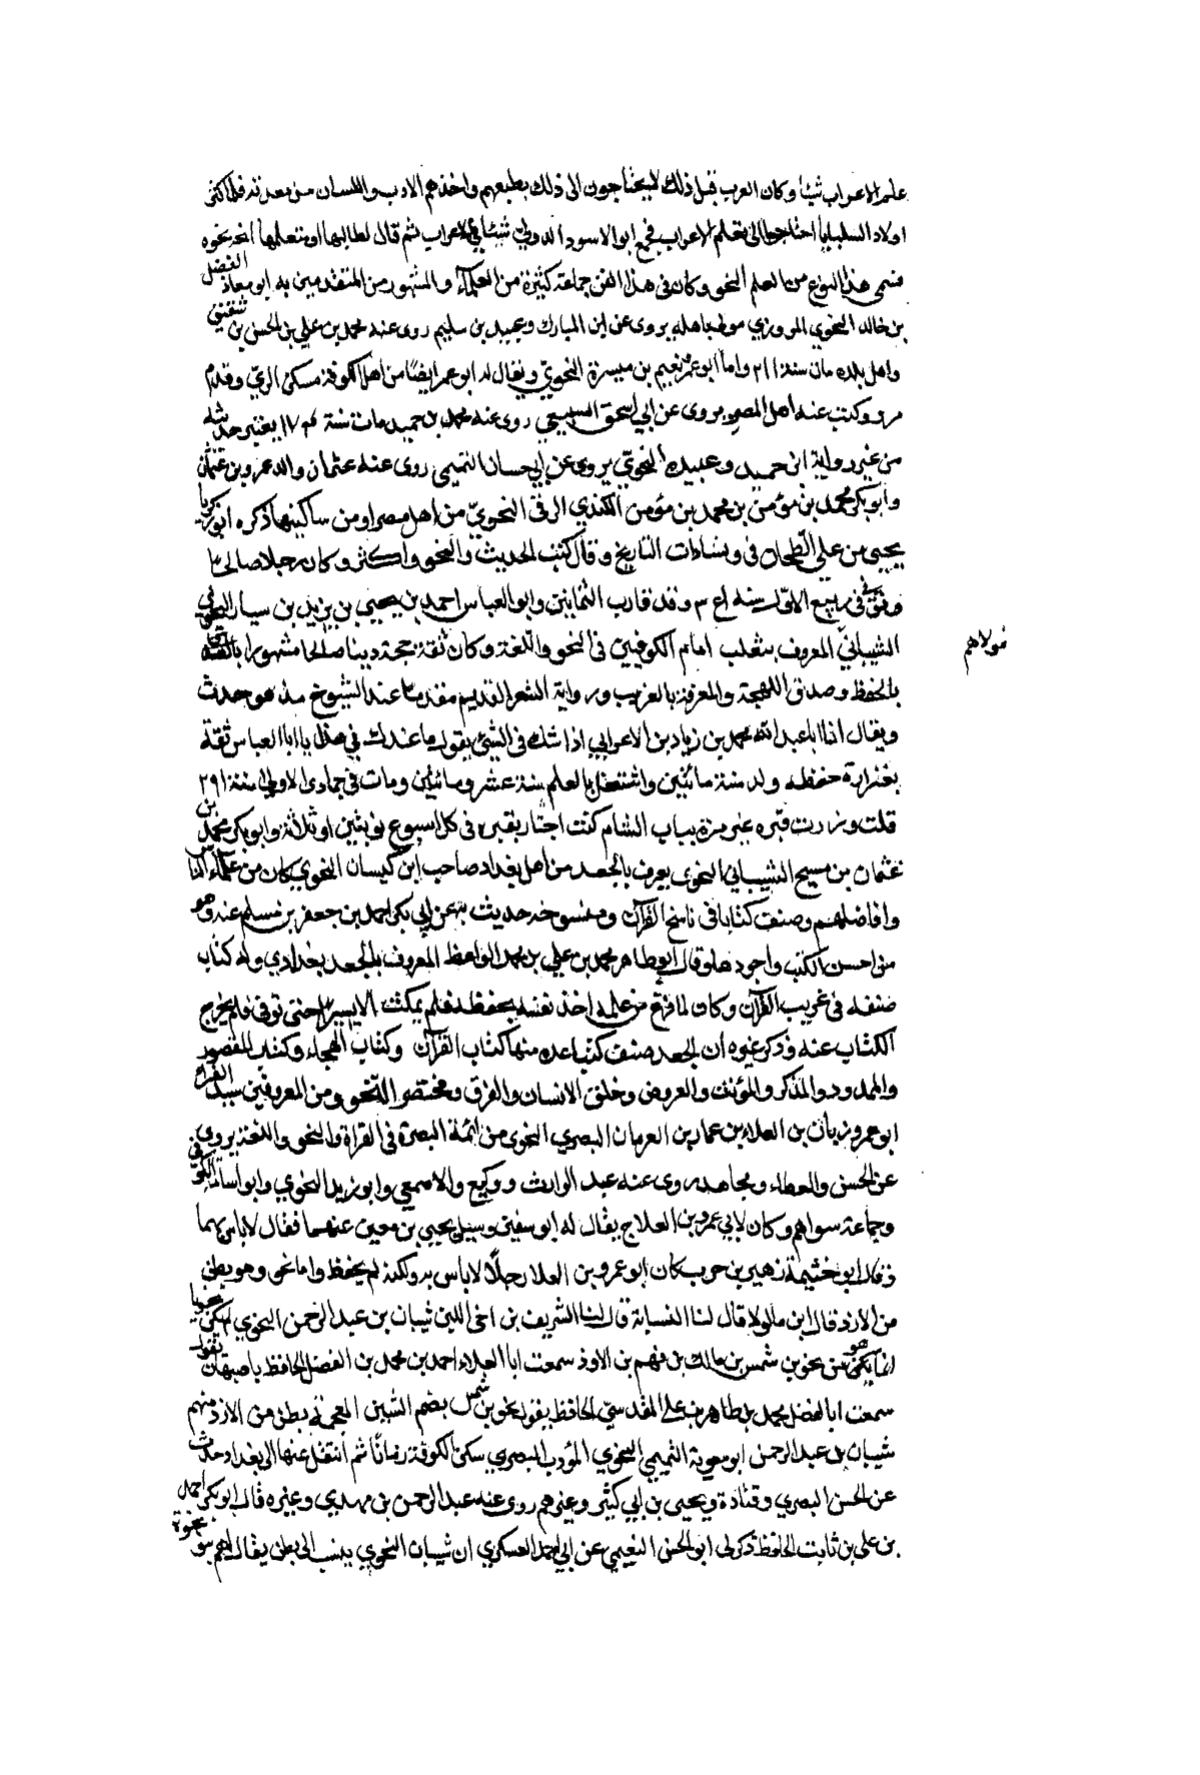 علم الاعراب شيئا وكان العرب قبل ذلك لا يحتاجون الى ذلك بطبعهم واخذهم الادب واللسان من معدنه فلما كثر
اولاد السبايا احتاجوا الى تعلم الاعراب فجمع ابو الاسود الدولي شيئا في الاعراب ثم قال لطالبها او متعلمها انح نحوه
فسمى هذا النوع من العلم النحو وكان في هذا الفن جماعة كثيرة من العلماء والمشهور من المتقدمين به ابو معاذ الفضل
بن خالد النحوي المروزي مولى باهله يروى عن ابن المبارك وعبيد بن سليم روى عنه محمد بن علي بن الحسن بن شقيق
واهل بلده مات سنة ٢١١ واما ابو عمر نعيم بن ميسرة النحوي ويقال له ابو عمر ايضا من اهل الكوفة سكن الري وقدم
مرو وكتب عنه اهل المصر يروى عن ابي اسحق السبيعي روى عنه محمد بن حميد مات سنة ١٧٤ يعتبر حديثه
من غير رواية ابن حميد وعبيده النحوي يروى عن ابي حسان التميمي روى عنه عثمان والد عمرو بن عثمان
وابو بكر محمد بن مؤمن بن محمد بن مؤمن الكندي الرقي النحوي من اهل مصر او من ساكنيها ذكره ابو زكريا
يحيى بن علي الطحان في وبشادات التاريخ وقال كتب الحديث والنحو واكثر وكان رجلا صالحا
وتوفي في ربيع الاول سنة ٣٤١ وقد قارب الثمانين وابو العباس احمد بن يحيى بن يزيد بن سيار النحوي
الشيباني المعروف بثعلب امام الكوفيين في النحو واللغة وكان ثقة حجة دينا صالحا مشهورا
مولاهم
بالحفظ وصدق اللهجة والمعرفة بالغريب ورواية الشعر القديم مقدما عند الشيوخ مذ هو حدث
ويقال ان ابا عبد الله محمد بن زياد بن الاعرابي اذا شك في الشئ يقول ما عندك في هذا يا ابا العباس ثقة
بغزارة حفظه ولد سنة مائتين واشتغل بالعلم سنة عشر ومائتين ومات في جمادى الاولى سنة ٢٩١
قلت وزرت قبره غير مرة بباب الشام كنت اجتاز بقبره في كل اسبوع نوبتين او ثلاثة وابو بكر محمد بن
عثمان بن مسيح الشيباني النحوى يعرف بالجعد من اهل بغداد صاحب ابن كيسان النحوي كان من علماء الناس
وافاضلهم وصنف كتابا في ناسخ القرآن ومنسوخه حديث به عن ابي بكر احمد بن جعفر بن مسلم عنه وهو
من احسن الكتب واجودها وقال ابو طاهر محمد بن علي بن محمد الواعظ المعروف بالجعد بغدادي وله كتاب
صنفه في غريب القرآن وكان لما فرغ من عمله اخذ نفسه بحفظه فلم يمكث الا يسيرا حتى توفي فلم يخرج
الكتاب عنه وذكر غيره ان الجعد صنف كتبا عده منها كتاب القرآن وكتاب الهجاء وكتاب المقصور
والممدود والمذكر والمؤنث والعروض وخلق الانسان والفرق ومختصر النحو ومن المعروفين سيد القراء
ابو عمرو زبان بن العلاء بن عمار بن العريان البصري النحوى من ائمة البصرة في القراة والنحو واللغة يروى
عن الحسن والعطاء ومجاهد روى عنه عبد الوارث ووكيع والاصمعي وابو زيد النحوي وابو اسامة الكوفي
وجماعة سواهم وكان لابي عمرو بن العلا اخ يقال له ابو سفين وسيل يحيى بن معين عنهما فقال لا باس بهما
وقال ابو خثيمة زهير بن حرب كان ابو عمرو بن العلا رجلا لا باس به ولكنه لم يحفظ واما نحو وهو بطن
من الازد قال ابن مالولا قال لنا الغسانة قال لنا الشريف بن اخى اللبن شيبان بن عبد الرحمن النحوي لم يكن نحويا
انما هو من نحو بن شمس بن مالك بن فهم بن الازد سمعت ابا العلاء احمد بن محمد بن الفضل الحافظ باصبهان يقول
سمعت ابا الفضل محمد بن طاهر بن علي المقدسي الحافظ يقول نحو بن شمس بضم الشين المعجمة بطن من الازد منهم
شيبان بن عبد الرحمن ابو معوية التميمي النحوي المؤدب البصري سكن الكوفة زمانا ثم انتقل عنها الى بغداد حدث
عن الحسن البصري وقتادة ويحيى بن ابي كثير وغيرهم روى عنه عبد الرحمن بن مهدي وغيره قال ابو بكر احمد
بن علي بن ثابت الحافظ ذكر لى ابو الحسن النعيمي عن ابي احمد العسكري ان شيبان النحوي ينسب الى بطن يقال لهم بنو نحوة